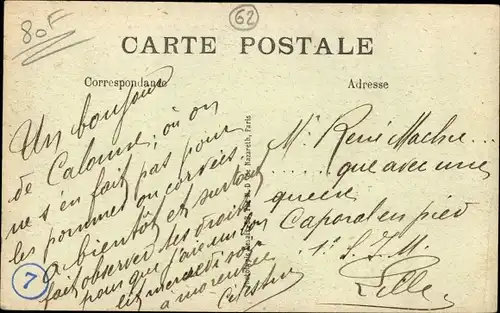 80F
62
CARTE POSTALE
Correspondance
Adresse
Un bonjour
de Calonne, où on
ne s'en fait pas pour
les pommes ou corvées
A bientôt et surtout
fait observer tes droits
pour que j'aie un bon
lit mercredi soir
à mon
7
D Nazareth, Paris
Mr René
que avec une
queue
Caporal en pied
1e S.I.M.
Lille